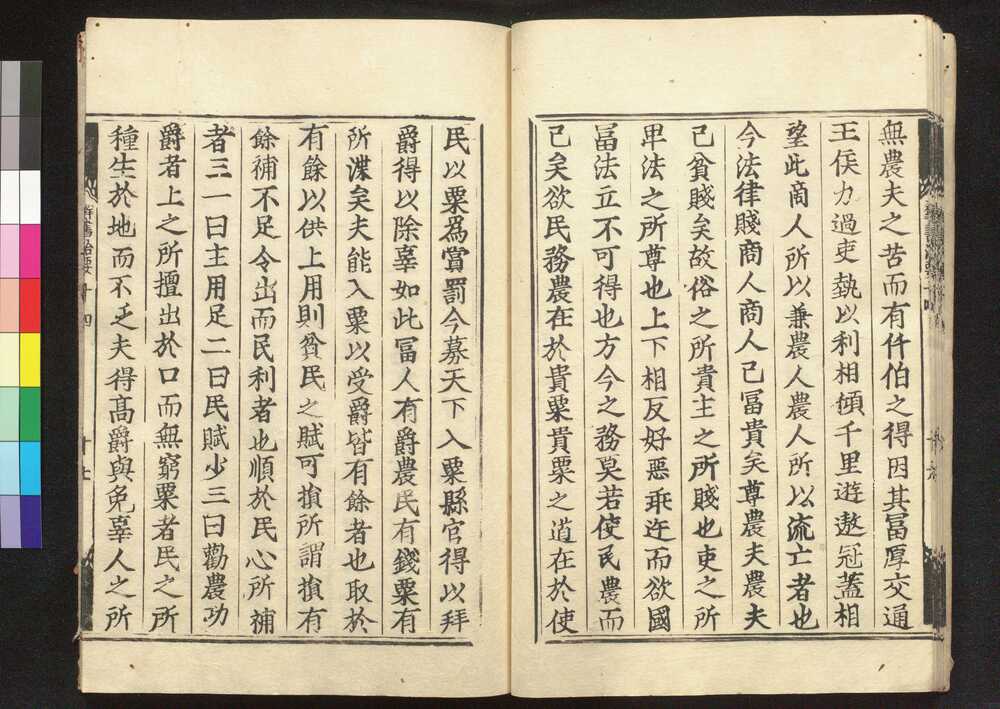 無農夫之苦而有仟伯之得因其冨厚交通
王侯力過吏埶以利相傾千里遊遨冠蓋相
望此商人所以兼農人農人所以流亡者也
今法律賤商人商人已冨貴矣尊農夫農夫
已貧賤矣故俗之所貴主之所賤也吏之所
卑法之所尊也上下相反好惡乖迕而欲國
冨法立不可得也方今之務莫若使民農而
已矣欲民務農在於貴粟貴粟之道在於使
民以粟爲賞罰今募天下入粟縣官得以拜
爵得以除辜如此冨人有爵農民有錢粟有
所渫矣夫能入粟以受爵皆有餘者也取於
有餘以供上用則貧民之賦可損所謂損有
餘補不足令出而民利者也順於民心所補
者三一曰主用足二曰民賦少三曰勸農功
爵者上之所擅出於口而無窮粟者民之所
種生於地而不乏夫得髙爵與免辜人之所
群書治要十四
十七